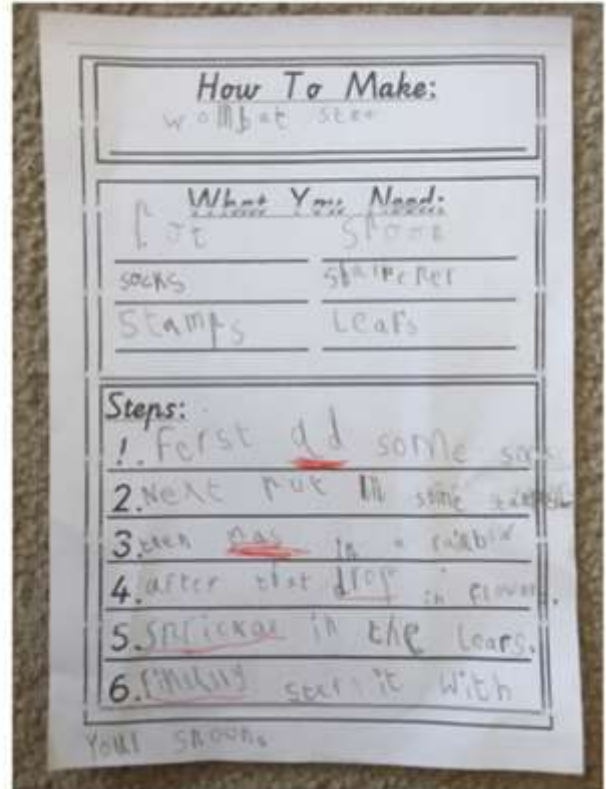 How To Make:
wombat stew
What You Need:
Pot spoon
socks
stamps Leafs
Steps:
1. Ferst ad some socs
2. Next put in some stamps
3. then in a rainbow
4. after that drop in flower.
5. in the Leafs.
6. it with
your spoon.